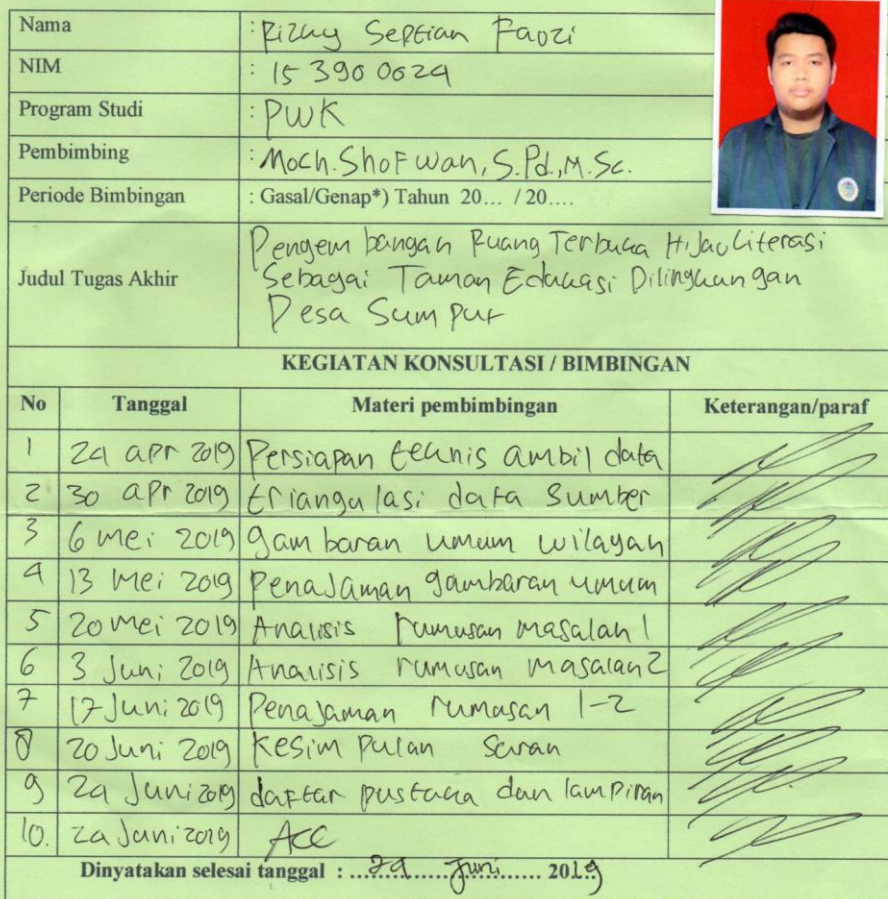 Nama : Rizky Septian Fauzi
NIM : 15 390 0024
Program Studi : PWK
Pembimbing : Moch. Shofwan, S.Pd., M.Sc.
Periode Bimbingan : Gasal/Genap*) Tahun 20... / 20....
Judul Tugas Akhir Pengembangan Ruang Terbuka Hijau Literasi
Sebagai Taman Edukasi Dilingkungan
Desa Sumput
KEGIATAN KONSULTASI / BIMBINGAN
No Tanggal Materi pembimbingan Keterangan/paraf
1 24 apr 2019 Persiapan teknis ambil data
2 30 apr 2019 triangulasi data Sumber
3 6 mei 2019 gambaran umum wilayah
4 13 mei 2019 Penajaman gambaran umum
5 20 mei 2019 Analisis rumusan masalah 1
6 3 Juni 2019 Analisis rumusan masalah 2
7 17 Juni 2019 Penajaman rumusan 1-2
8 20 Juni 2019 Kesimpulan saran
9 24 Juni 2019 daftar pustaka dan lampiran
10. 24 Juni 2019 Acc
Dinyatakan selesai tanggal : ...24.....Juni...... 2019